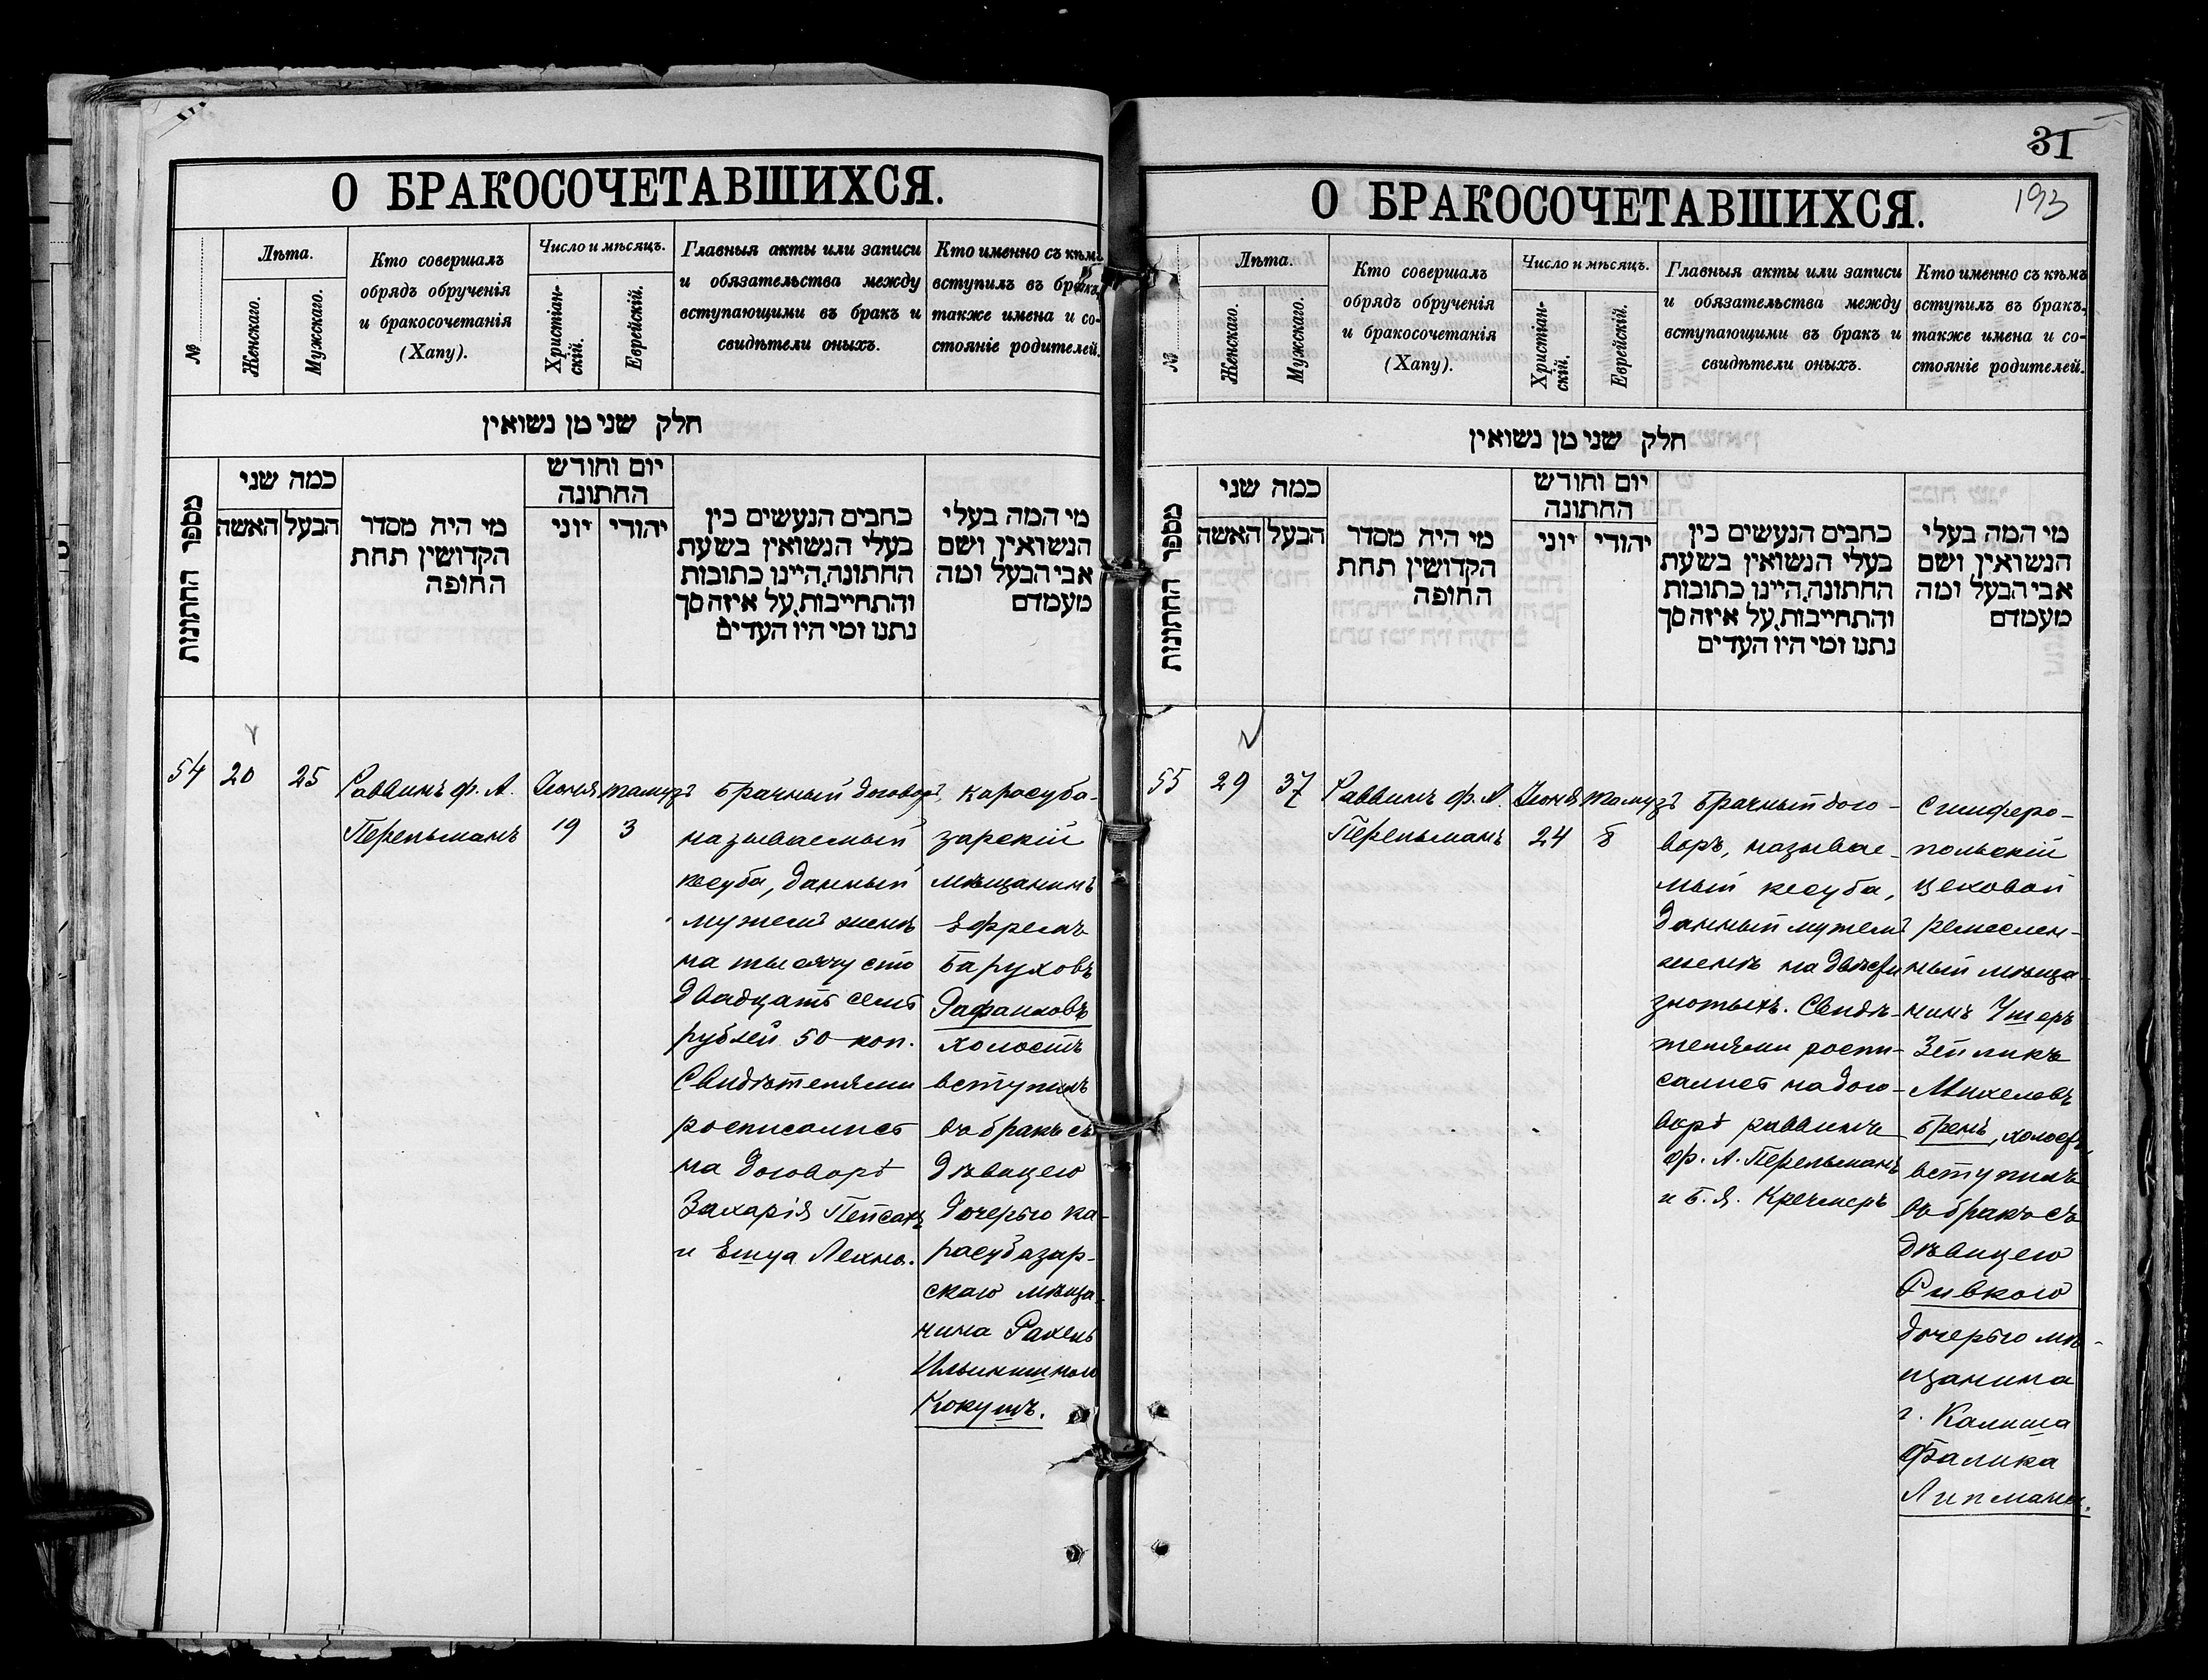 О БРАКОСОЧЕТАВШИХСЯ.
№
Лѣта.
Женскаго.
Мужскаго.
Кто совершалъ
обрядъ обрученія
и бракосочетанія
(Хапу).
Число и мѣсяцъ.
Христіан-
скій.
Еврейскій.
Главныя акты или записи
и обязательства между
вступающими въ бракъ и
свидѣтели оныхъ.
Кто именно съ кѣмъ
вступилъ въ бракъ,
также имена и со-
стояніе родителей.
חלק שני מן נשואין
מספר החתונות
כמה שני
האשה
הבעל
מי היה מסדר
הקדושין תחת
החופה
יום וחודש
החתונה
יוני
יהודי
כתבים הנעשים בין
בעלי הנשואין בשעת
החתונה, היינו כתובות
והתחייבות, על איזה סך
נתנו ומי היו העדים
מי המה בעלי
הנשואין, ושם
אבי הבעל ומה
מעמדם
54
20
25
Раввинъ ф. А.
Перельманъ
Іюня
19
Тамузъ
3
Брачный договоръ,
называемый
кесуба, данный
мужемъ женѣ
на тысячу сто
двадцать семь
рублей 50 коп.
Свидѣтелями
росписались
на договорѣ
Захарія Пейсахъ
и Ешуа Лехно.
Карасуба-
зарскій
мѣщанинъ
Ефремъ
Баруховъ
Рафаиловъ
холостъ
вступилъ
въ бракъ съ
дѣвицею
дочерью ка-
расубазар-
скаго мѣща-
нина Рахель
Ильинишною
Кокушъ.
31
193
О БРАКОСОЧЕТАВШИХСЯ.
№
Лѣта.
Женскаго.
Мужскаго.
Кто совершалъ
обрядъ обрученія
и бракосочетанія
(Хапу).
Число и мѣсяцъ.
Христіан-
скій.
Еврейскій.
Главныя акты или записи
и обязательства между
вступающими въ бракъ и
свидѣтели оныхъ.
Кто именно съ кѣмъ
вступилъ въ бракъ,
также имена и со-
стояніе родителей.
חלק שני מן נשואין
מספר החתונות
כמה שני
האשה
הבעל
מי היה מסדר
הקדושין תחת
החופה
יום וחודש
החתונה
יוני
יהודי
כתבים הנעשים בין
בעלי הנשואין בשעת
החתונה, היינו כתובות
והתחייבות, על איזה סך
נתנו ומי היו העדים
מי המה בעלי
הנשואין, ושם
אבי הבעל ומה
מעמדם
55
29
37
Раввинъ ф. А.
Перельманъ
Іюня
24
Тамузъ
8
Брачный дого-
воръ, называе-
мый кесуба,
данный мужемъ
женѣ на двѣсти
злотыхъ. Свидѣ-
телями роспи-
сались на дого-
ворѣ раввинъ
ф. А. Перельманъ
и Б. Я. Кречмеръ
Симферо-
польскій
цеховой
ремеслен-
ный мѣща-
нинъ Ушеръ
Зейликъ
Михелевъ
Бремъ, холостъ,
вступилъ
въ бракъ съ
дѣвицею
Ривкою
дочерью мѣ-
щанина
г. Калиша
Фалика
Липмана.